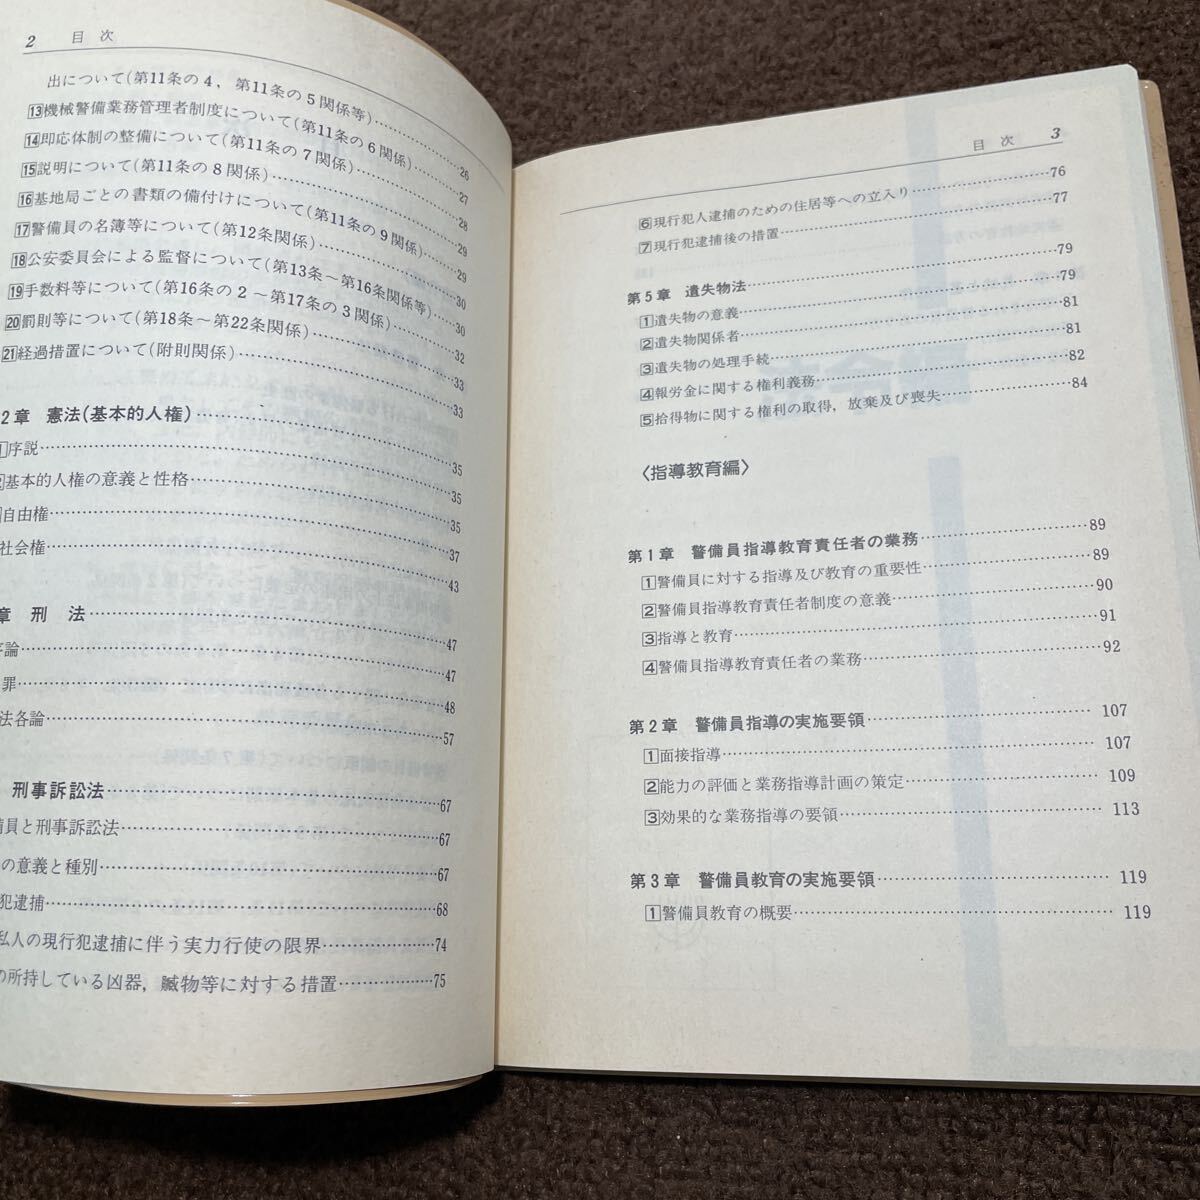 2 目次
出について(第11条の4，第11条の5関係等)
13機械警備業務管理者制度について(第11条の6関係)……26
14即応体制の整備について(第11条の7関係)……27
15説明について(第11条の8関係)……28
16基地局ごとの書類の備付けについて(第11条の9関係)……29
17警備員の名簿等について(第12条関係)……29
18公安委員会による監督について(第13条～第16条関係等)……30
19手数料等について(第16条の2～第17条の3関係)……30
20罰則等について(第18条～第22条関係)……32
21経過措置について(附則関係)……33
2章 憲法(基本的人権)……33
1序説……35
基本的人権の意義と性格……35
自由権……35
社会権……37
43
章 刑法……47
論……47
罪……48
法各論……57
刑事訴訟法……67
備員と刑事訴訟法……67
の意義と種別……67
犯逮捕……68
私人の現行犯逮捕に伴う実力行使の限界……74
の所持している凶器，贓物等に対する措置……75
目次 3
6現行犯人逮捕のための住居等への立入り……76
7現行犯逮捕後の措置……77
第5章 遺失物法……79
1遺失物の意義……79
2遺失物関係者……81
3遺失物の処理手続……81
4報労金に関する権利義務……82
5拾得物に関する権利の取得，放棄及び喪失……84
〈指導教育編〉
第1章 警備員指導教育責任者の業務……89
1警備員に対する指導及び教育の重要性……89
2警備員指導教育責任者制度の意義……90
3指導と教育……91
4警備員指導教育責任者の業務……92
第2章 警備員指導の実施要領……107
1面接指導……107
2能力の評価と業務指導計画の策定……109
3効果的な業務指導の要領……113
第3章 警備員教育の実施要領……119
1警備員教育の概要……119